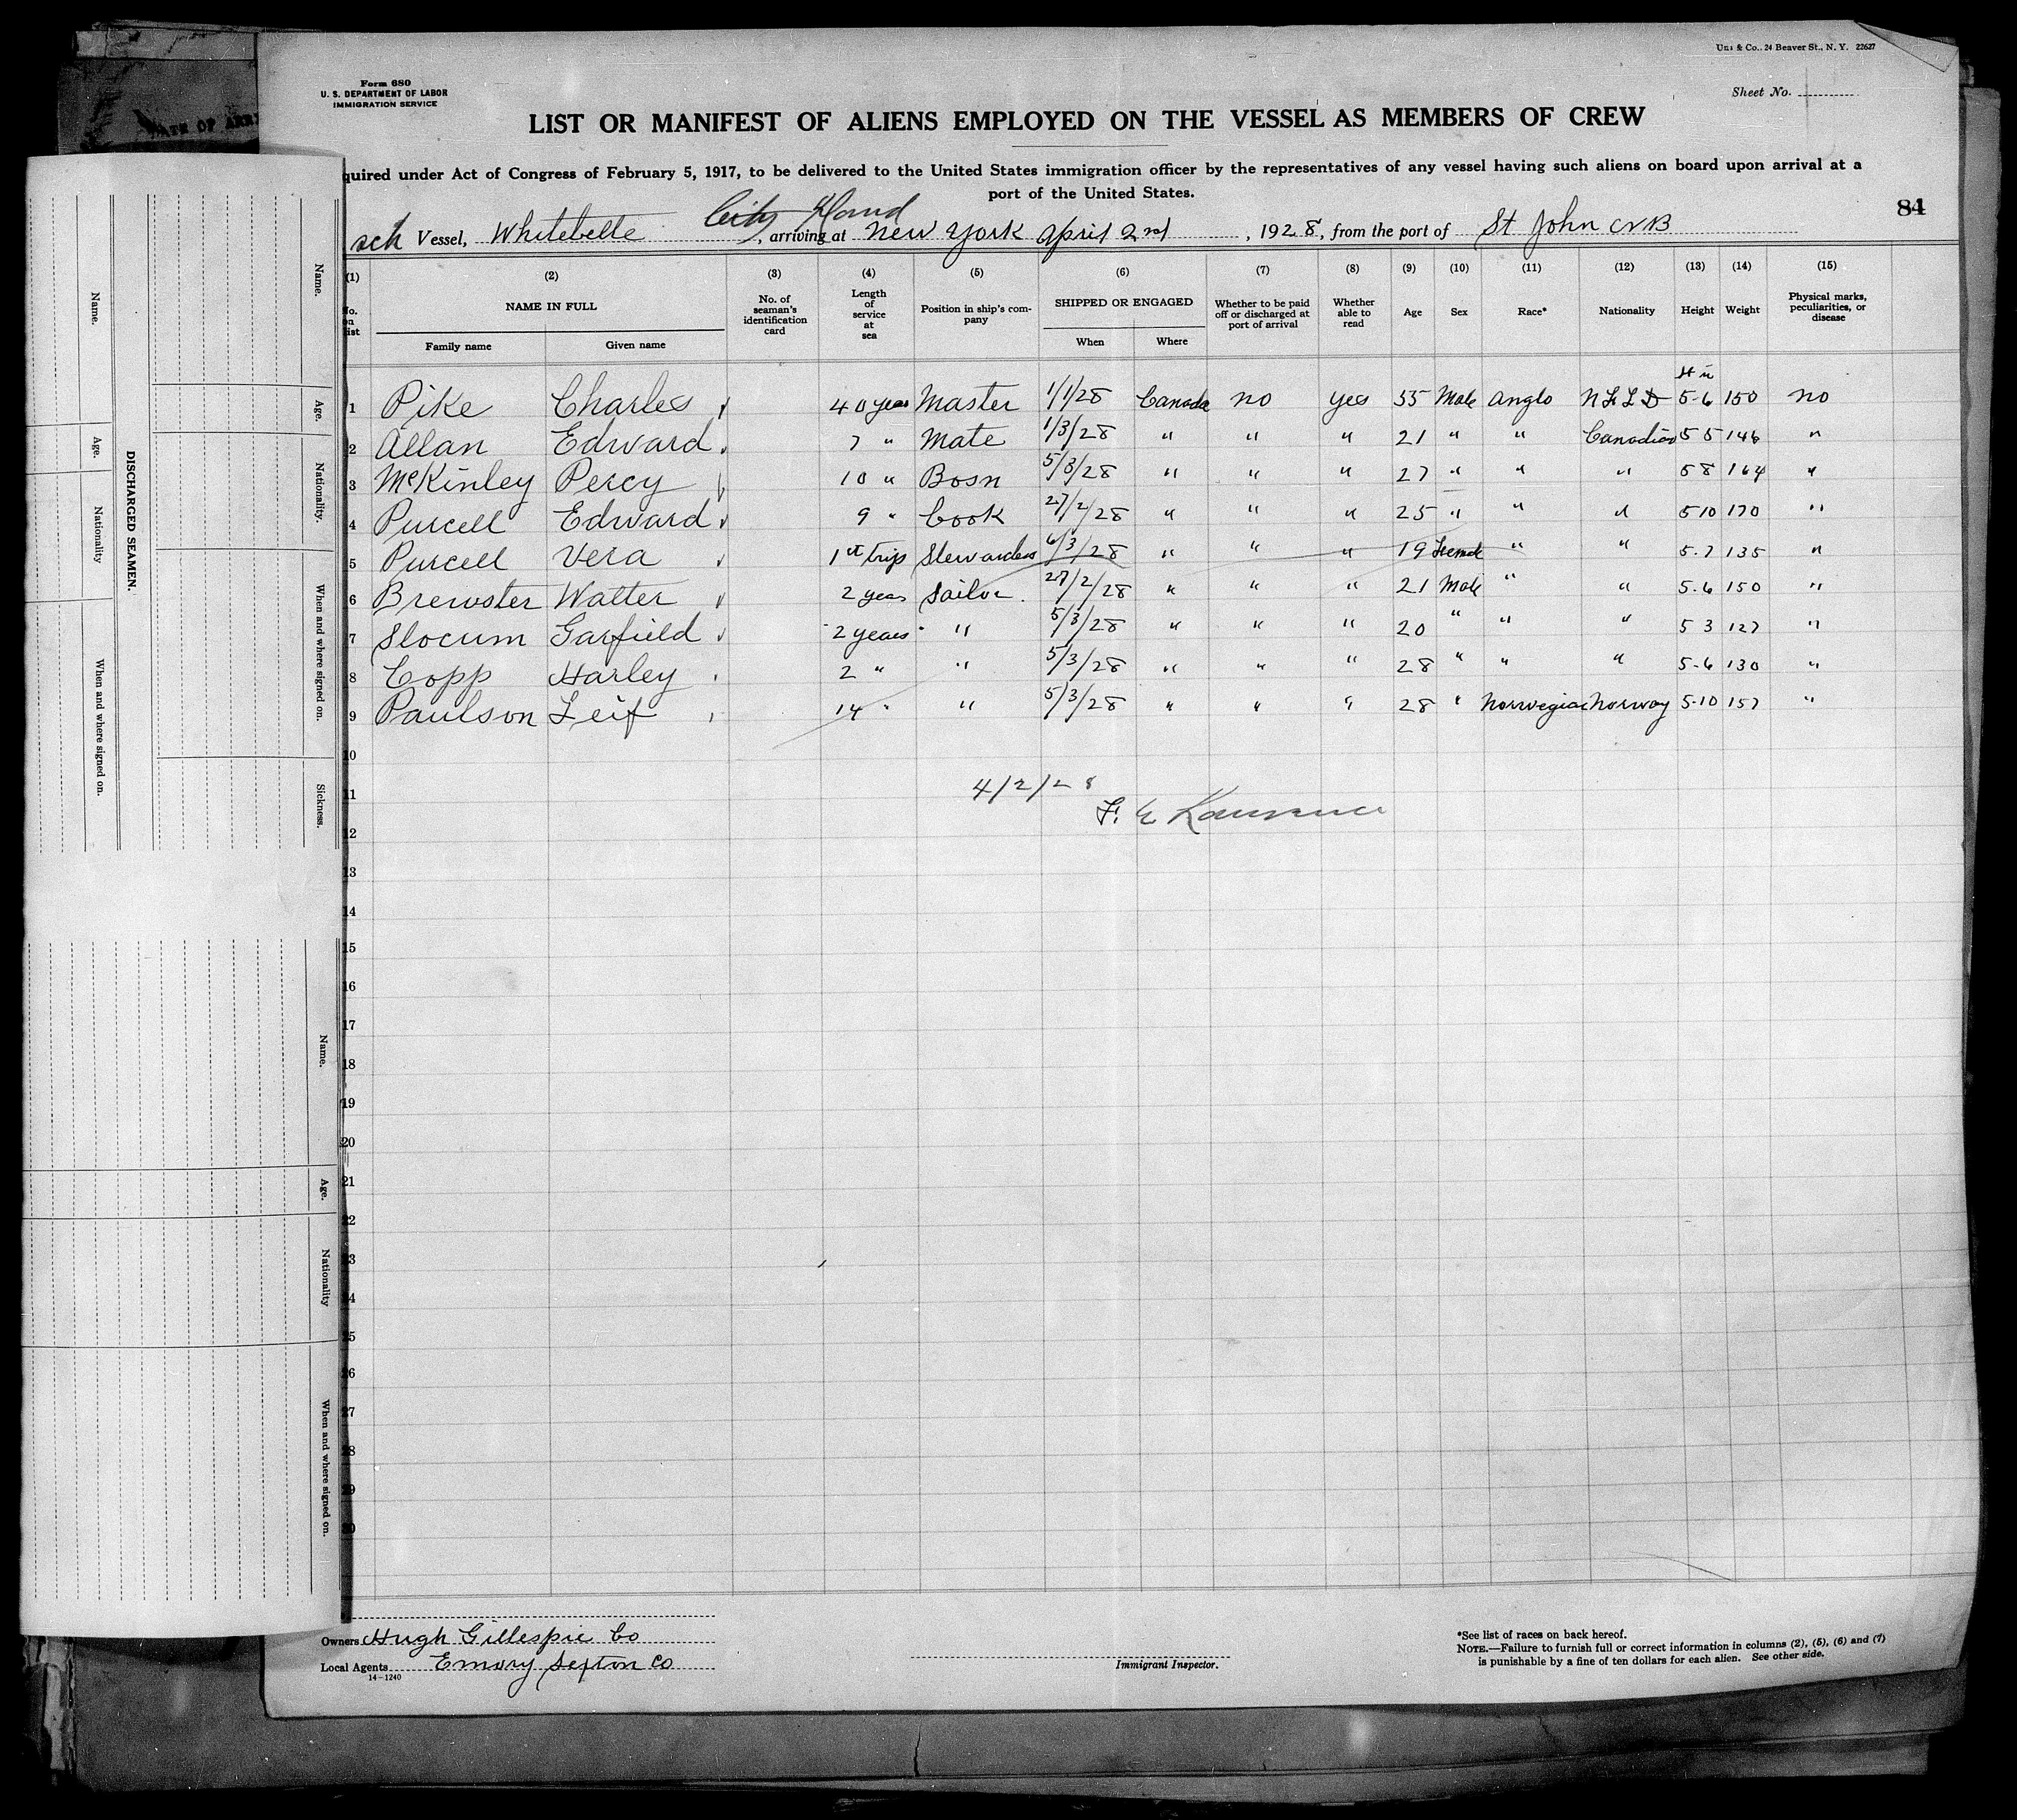 Uni & Co., 24 Beaver St., N. Y. 22627
Form 680
U. S. DEPARTMENT OF LABOR
IMMIGRATION SERVICE
Sheet No.
LIST OR MANIFEST OF ALIENS EMPLOYED ON THE VESSEL AS MEMBERS OF CREW
quired under Act of Congress of February 5, 1917, to be delivered to the United States immigration officer by the representatives of any vessel having such aliens on board upon arrival at a
port of the United States.
84
City Island
sch Vessel, Whitebelle, arriving at New York April 2nd, 1928, from the port of St John NB
(1) (2) (3) (4) (5) (6) (7) (8) (9) (10) (11) (12) (13) (14) (15)
No. on list NAME IN FULL Family name Given name No. of seaman's identification card Length of service at sea Position in ship's company SHIPPED OR ENGAGED When Where Whether to be paid off or discharged at port of arrival Whether able to read Age Sex Race* Nationality Height Weight Physical marks, peculiarities, or disease
ft in
1 Pike Charles 40 years Master 1/1/28 Canada no yes 55 Male Anglo NFLD 5-6 150 no
2 Allan Edward 7 " Mate 1/3/28 " " " 21 " " Canadian 5 5 146 "
3 McKinley Percy 10 " Bosn 5/3/28 " " " 27 " " " 5 8 164 "
4 Purcell Edward 9 " Cook 27/2/28 " " " 25 " " " 5 10 170 "
5 Purcell Vera 1st trip Stewardess 6/3/28 " " " 19 Female " " 5-7 135 "
6 Brewster Walter 2 years Sailor 27/2/28 " " " 21 Male " " 5-6 150 "
7 Slocum Garfield 2 years " 5/3/28 " " " 20 " " " 5 3 127 "
8 Copp Harley 2 " " 5/3/28 " " " 28 " " " 5-6 130 "
9 Paulson Leif 14 " " 5/3/28 " " " 28 " Norwegian Norway 5-10 157 "
10
11 4/2/28
F. E. Lawrence
12
13
14
15
16
17
18
19
20
21
22
23
24
25
26
27
28
29
30
Owners Hugh Gillespie Co
Local Agents Emory Sexton Co
14-1240
Immigrant Inspector.
*See list of races on back hereof.
NOTE.—Failure to furnish full or correct information in columns (2), (5), (6) and (7)
is punishable by a fine of ten dollars for each alien. See other side.
DISCHARGED SEAMEN.
Name.
Age.
Nationality
When and where signed on.
Name.
Age.
Nationality.
When and where signed on.
Sickness.
Name.
Age.
Nationality
When and where signed on.
DATE OF ARRI